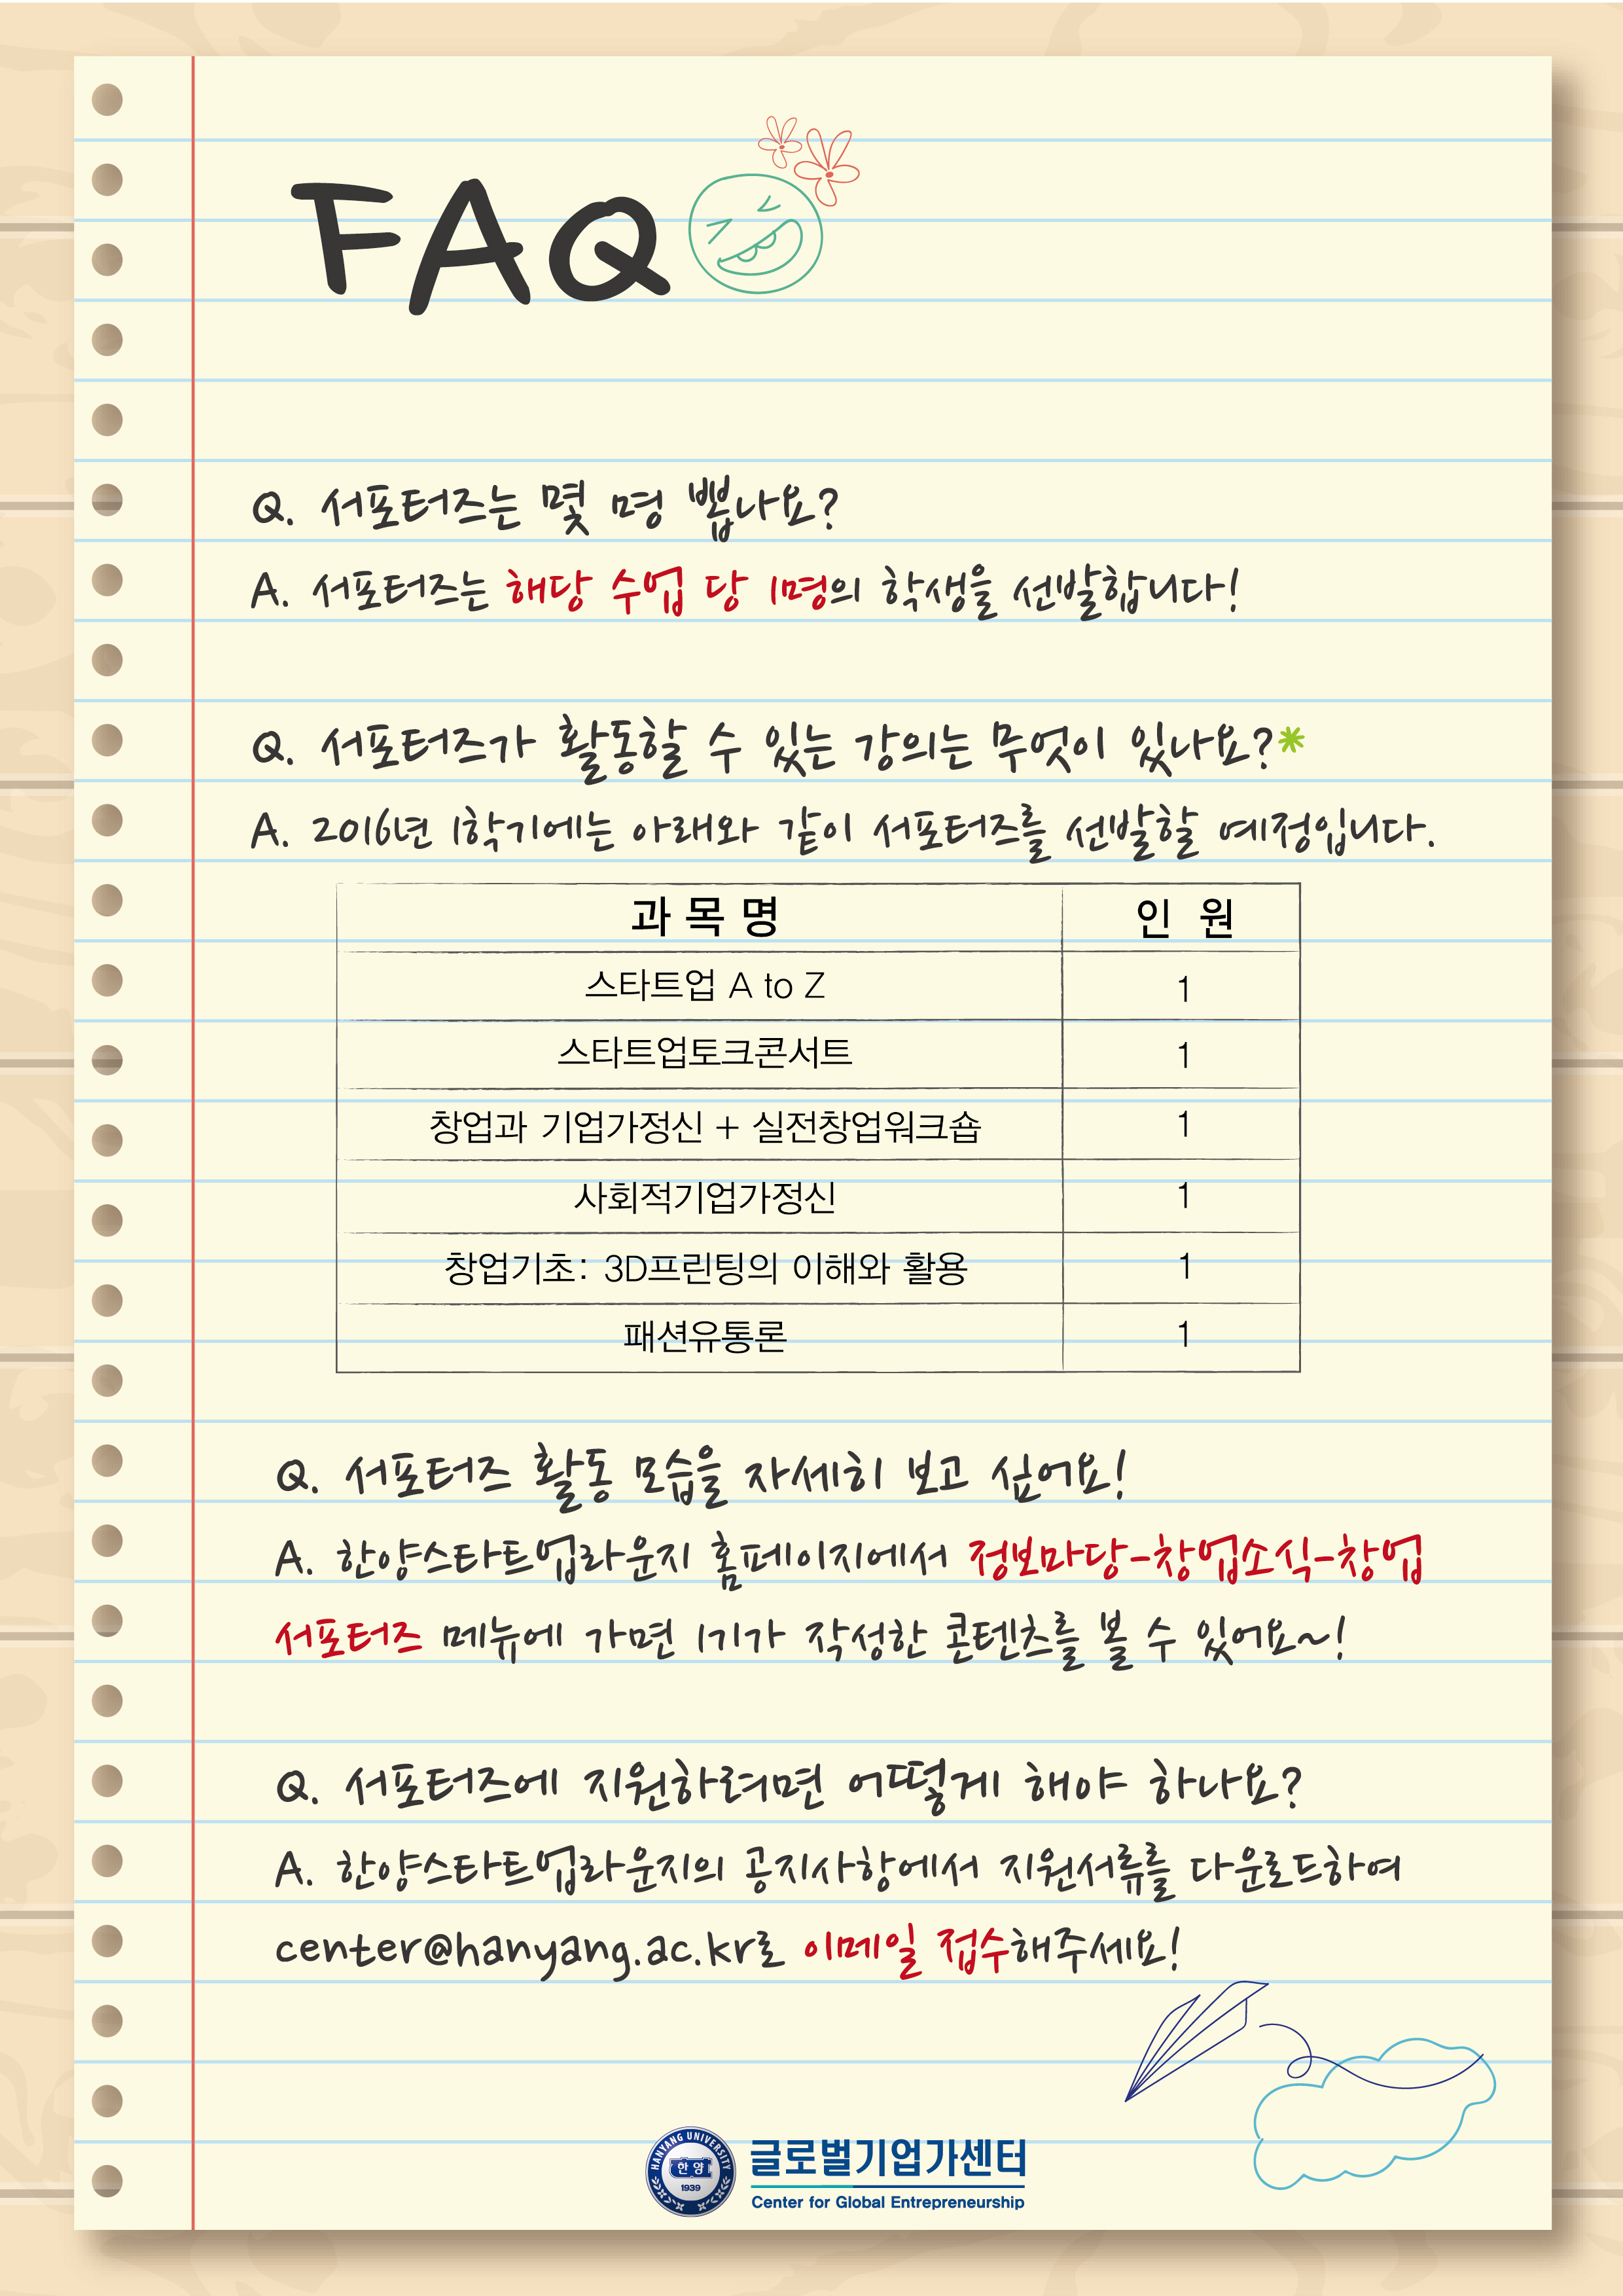 FAQ
Q. 서포터즈는 몇 명 뽑나요?
A. 서포터즈는 해당 수업 당 1명의 학생을 선발합니다!
Q. 서포터즈가 활동할 수 있는 강의는 무엇이 있나요?*
A. 2016년 1학기에는 아래와 같이 서포터즈를 선발할 예정입니다.
과 목 명 인 원
스타트업 A to Z 1
스타트업토크콘서트 1
창업과 기업가정신 + 실전창업워크숍 1
사회적기업가정신 1
창업기초: 3D프린팅의 이해와 활용 1
패션유통론 1
Q. 서포터즈 활동 모습을 자세히 보고 싶어요!
A. 한양스타트업라운지 홈페이지에서 정보마당-창업소식-창업
서포터즈 메뉴에 가면 1기가 작성한 콘텐츠를 볼 수 있어요~!
Q. 서포터즈에 지원하려면 어떻게 해야 하나요?
A. 한양스타트업라운지의 공지사항에서 지원서류를 다운로드하여
center@hanyang.ac.kr로 이메일 접수해주세요!
HANYANG UNIVERSITY
한양
1939
글로벌기업가센터
Center for Global Entrepreneurship